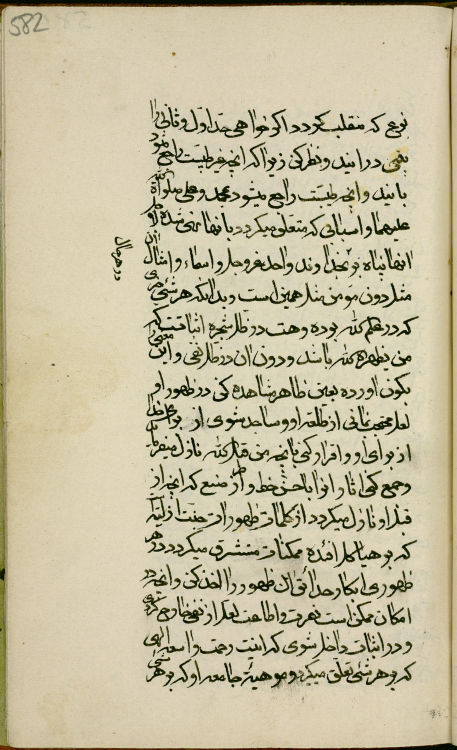 582
نوعی که منقلب گردد اگر خواهی حد اول و ثانی را
نفی در اینید و نظر کن زیرا که آنچه غیر طیب راجع میشود
باینید و آنچه طیبست راجع میشود بمحمد و علی صلوات الله
علیهما و اسبابی که متعلق میگردد بانها
انها پناه بر بخداوند واحد عز و جل و اسماء و امثال
مثل دون مؤمن مثل همین است و بدانکه هر شیئ
در هر حال
که در علم الله بوده و هست در ظل شجره اثباتست که
من یظهره الله باشد و دون ان در ظل نفی و این
بکون آورده بعین ظاهر مشاهده کن در ظهور او
لعل محتجب نمانی از طلعة او و ساجد شوی از برای خدا
از برای او و اقرار کنی بآنچه من قبل الله نازل میفرماید
و جمع کنی اثار او را باحسن خط و ارفع صنع که آنچه از
قبل او نازل میگردد از کلمات ظهورات جنت ازلیه
که بر هیاکل افئده ممکنات مستشرق میگردد در هر
ظهوری ابکار حدائق ان ظهور را اخذ کن و آنچه در
امکان ممکن است نصرت و اطاعت لعل از نفی خارج گردی
و در اثبات داخل شوی که اینست رحمت واسعه الهی
که بر هر شیئ تعلق میگیرد و موهبة جامعه او که بر هر شیئ